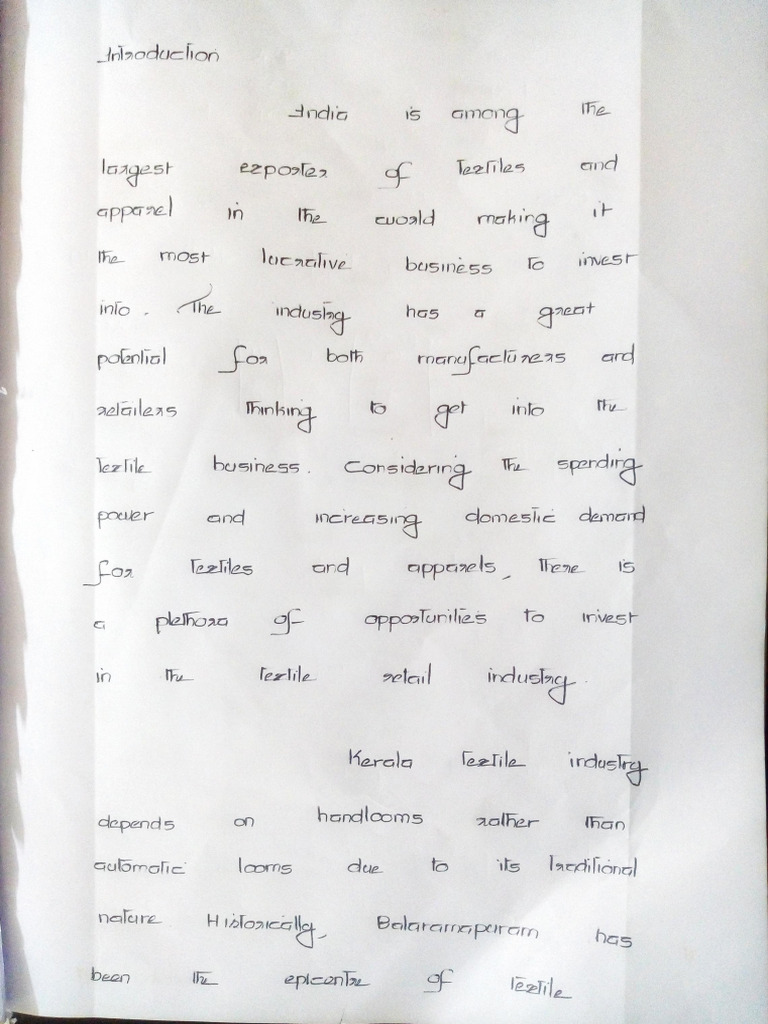 Introduction
India is among the
largest exporter of Textiles and
apparel in the world making it
the most lucrative business to invest
into. The industry has a great
potential for both manufacturers and
retailers Thinking to get into the
Textile business. Considering the spending
power and increasing domestic demand
for Textiles and apparels, there is
a plethora of opportunities to invest
in the textile retail industry.
Kerala Textile industry
depends on handlooms rather than
automatic looms due to its Traditional
nature Historically, Balaramapuram has
been the epicentre of Textile